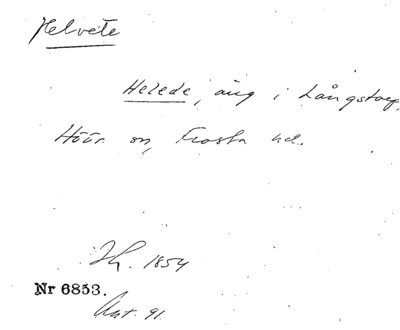 Helvete
Helede, äng i Långstorp,
Höör sn, Frosta hd.
Sk. 1854
Nr 6853.
Ant. 91.